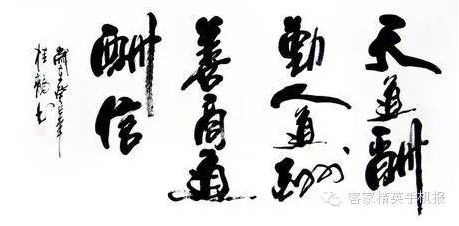 天道酬
勤人道酬
善商道
酬信
客家精英手机报